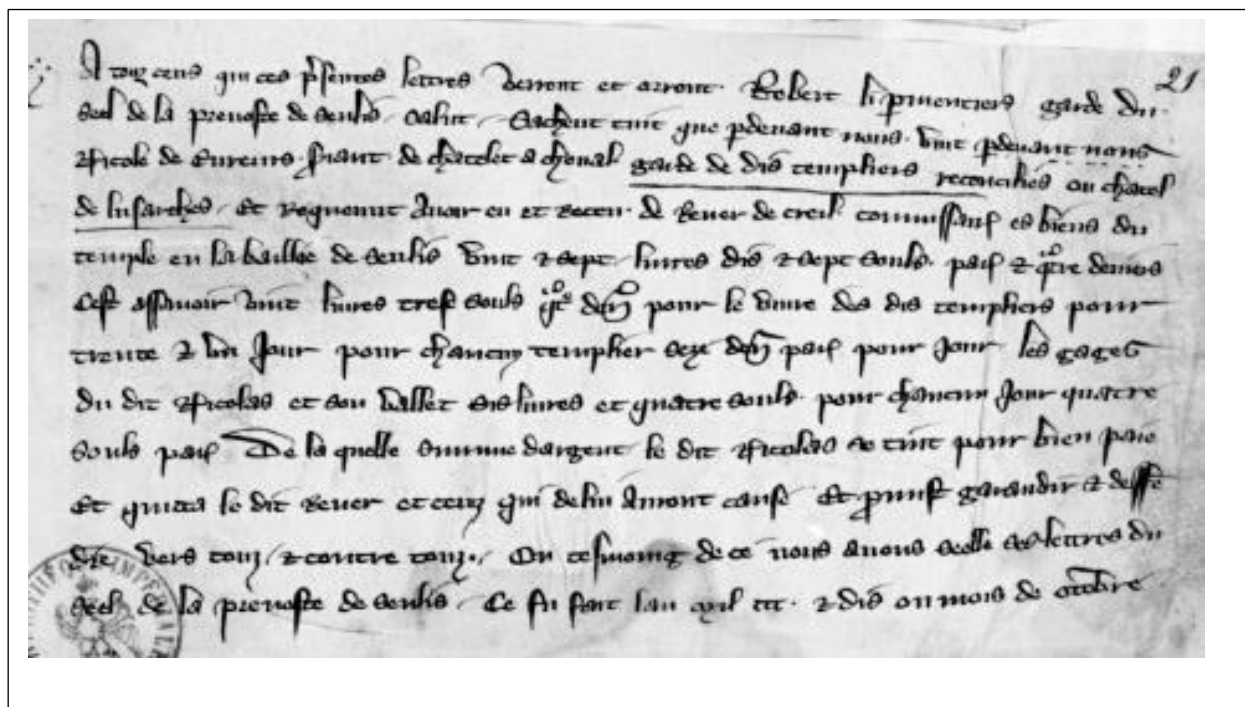 21
A touz ceus qui ces p'sentes lettres verront et orront Robert li parmentiers garde du
seel de la prevoste de senlis salut Sachent tuit que pdevant nous vint pdevant nous
Nicole de Evreux de chatelet a cheval garde de dis templiers reconciliés ou chatel
de lusarches Et requenut avoir eu et receu de Rener de creil commissaire es biens du
temple en la baillie de senlis vint & sept livres dis & sept souls par & qtre deniers
Cest assavoir vint livres trese souls den pour le vivre des dis templiers pour
trente & un jour pour chacun templier seze den par pour jour les gages
du dit Nicolas et son vallet sis livres et quatre souls pour chacun jour quatre
souls par De la quelle summe dargent le dit Nicolas se tint pour bien paié
Et quita le dit Rener et ceus qui de lui aront cause Et promist garandir & deffē
dre vers touz & contre touz On tesmoing de ce nous avons seelle ses lettres du
seel de la prevoste de senlis Ce fu fait lan mil ccc & dis ou mois de octobre